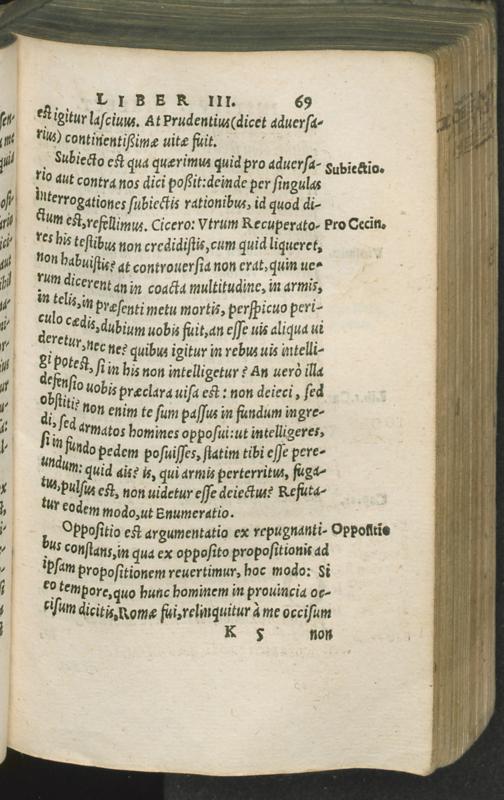 LIBER III. 69
est igitur lasciuus. At Prudentius (dicet aduersa-
rius) continentißimæ uitæ fuit.
Subiectio est qua quærimus quid pro aduersa- Subiectio.
rio aut contra nos dici poßit: deinde per singulas
interrogationes subiectis rationibus, id quod di-
ctum est, refellimus. Cicero: Vtrum Recuperato- Pro Cecin.
res his testibus non credidistis, cum quid liqueret,
non habuistis? at controuersia non erat, quin ue-
rum dicerent an in coacta multitudine, in armis,
in telis, in præsenti metu mortis, perspicuo peri-
culo cædis, dubium uobis fuit, an esse uis aliqua ui
deretur, nec ne? quibus igitur in rebus uis intelli-
gi potest, si in his non intelligetur? An uerò illa
defensio uobis præclara uisa est: non deieci, sed
obstiti? non enim te sum passus in fundum ingre-
di, sed armatos homines opposui: ut intelligeres,
si in fundo pedem posuisses, statim tibi esse pere-
undum: quid ais? is, qui armis perterritus, fuga-
tus, pulsus est, non uidetur esse deiectus? Refuta-
tur eodem modo, ut Enumeratio.
Oppositio est argumentatio ex repugnanti- Oppositio
bus constans, in qua ex opposito propositionis ad
ipsam propositionem reuertimur, hoc modo: Si
eo tempore, quo hunc hominem in prouincia oc-
cisum dicitis, Romæ fui, relinquitur à me occisum
K 5 non